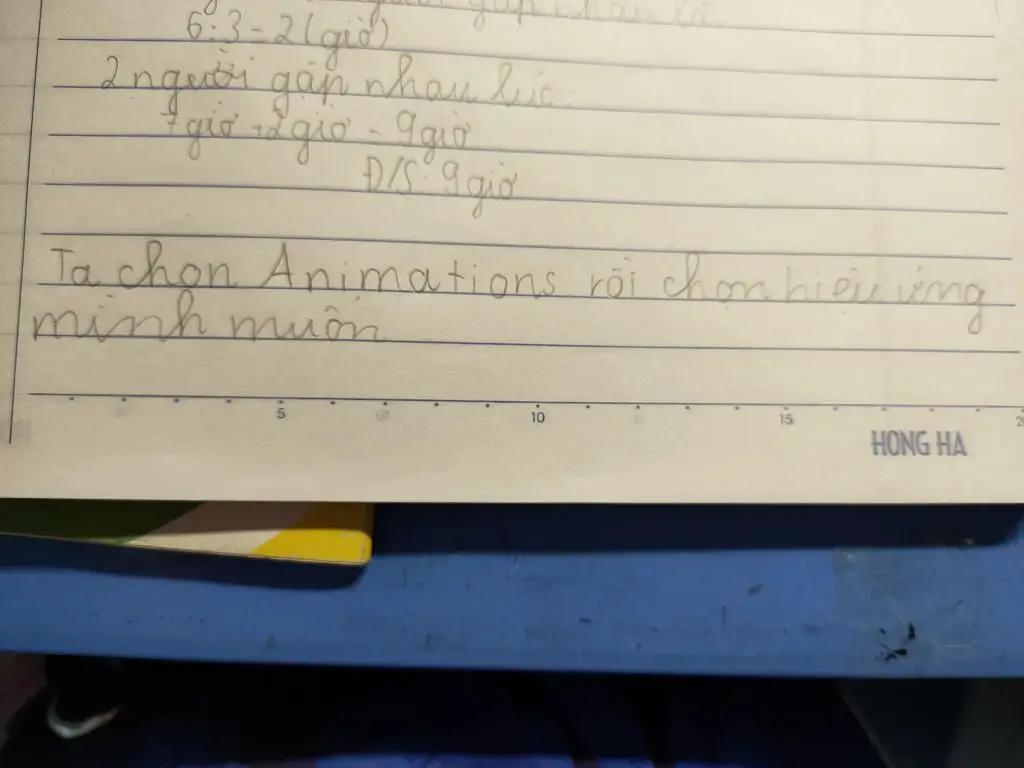 người gặp nhau là
6:3=2(giờ)
2 người gặp nhau lúc
7 giờ + 2 giờ = 9 giờ
Đ/S: 9 giờ
Ta chọn Animations rồi chọn hiệu ứng
mình muốn
5 10 15 20
HONG HA